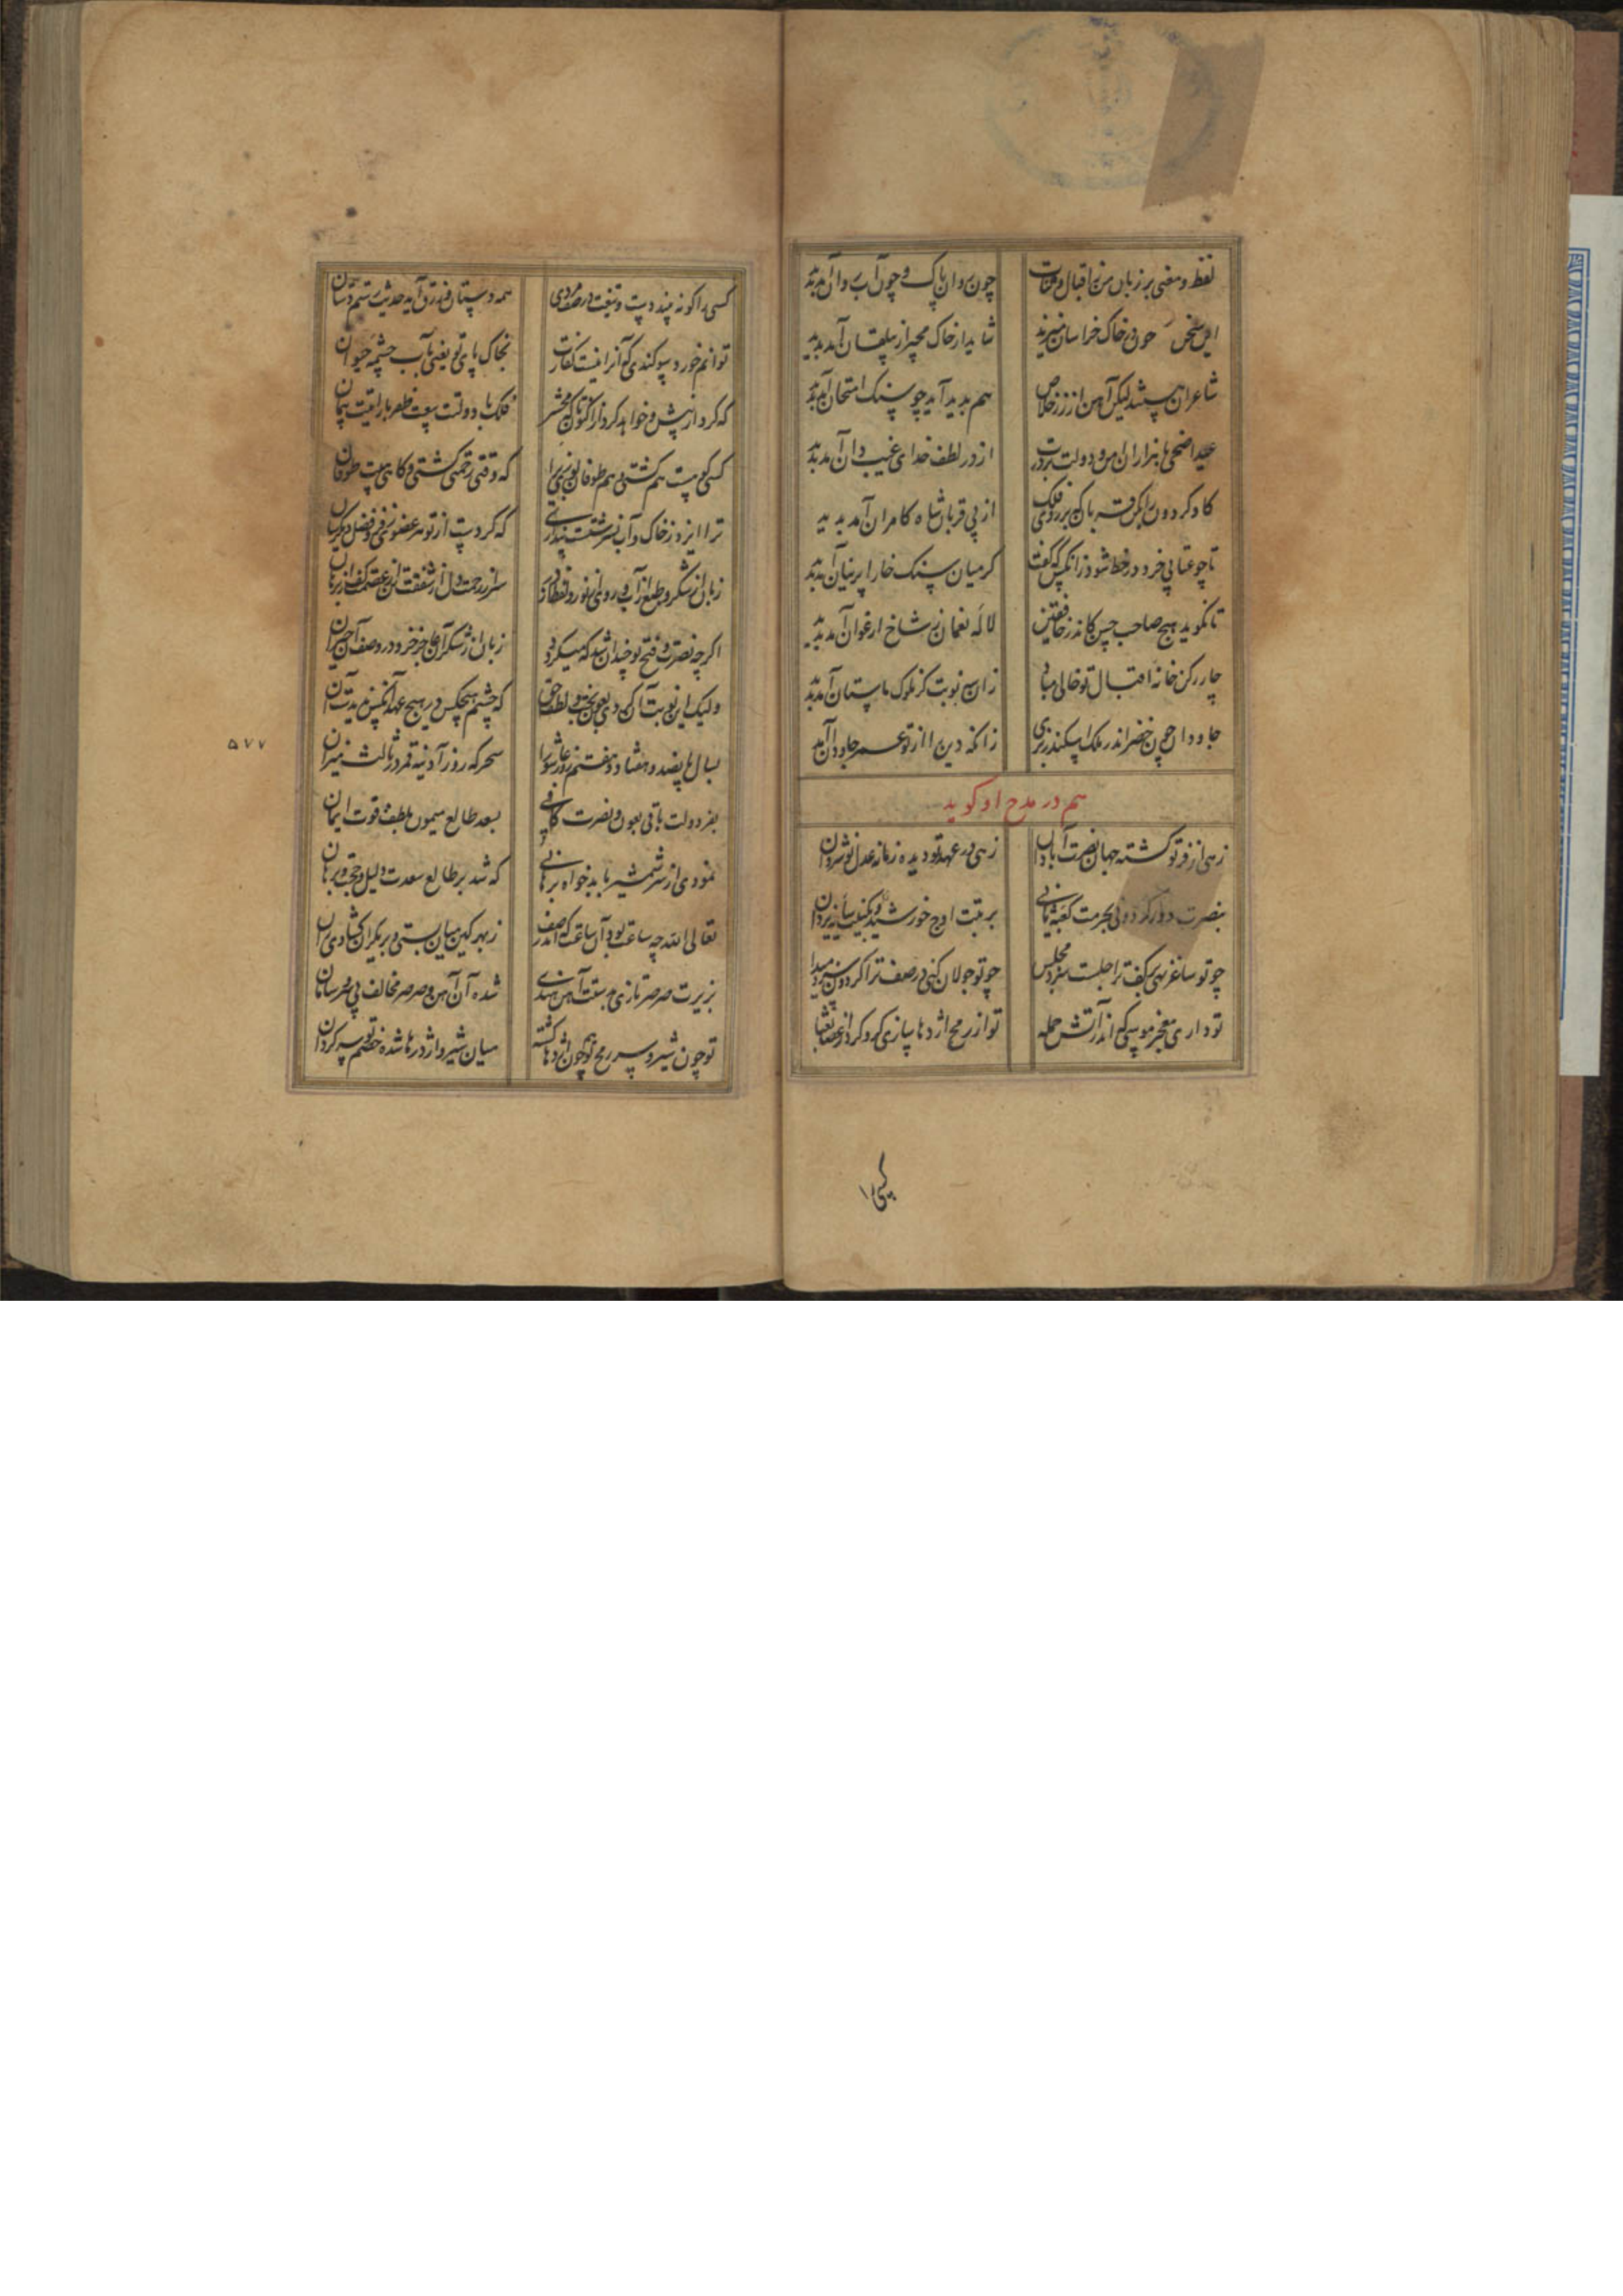 لفظ و معنی بر زبان من ز اقبال و ثنات چون روان پاک و چون آب روان آمد پدید
این سخن چون خاک خراسان میبرند شاید ار خاک مجیر از بیلقان آمد پدید
شاعران هستند لیکن آهن از زر خلاص هم پدید آید چو سنک امتحان آمد پدید
عید اضحی با هزاران امن و دولت بر درت از در لطف خدای غیب دان آمد پدید
کاو کردون از پی قربان شاه کامران آمد پدید
تا چو عنابی خرد در خط شود زانکس که گفت کز میان سنک خارا پرنیان آمد پدید
تا نکوید هیچ صاحب حس کاندر خافقین لاله نعمان ز شاخ ارغوان آمد پدید
چار رکن خانه اقبال تو خالی مباد زان سه نوبت کز ملوک باستان آمد پدید
جاودان چون خضر اندر ملک اسکندر بزی زانکه دین را از تو عمر جاودان آمد
هم در مدح او کوید
زهی از فر تو کشته جهان نصرت آبادان زهی در عهد تو دیده زمانه عدل نوشروان
بنصرت دور کردونی بحرمت کعبه ثانی برتبت اوج خورشید و بکنیت سایه یزدان
چو تو ساغر نهی بر کف ترا جلست سزد مجلس چو تو جولان کنی در صف ترا کردون سزد میدان
تو داری معجز موسی که اندر آتش حمله تو از رمح اژدها سازی کرو کرد از عصا ثعبان
کسی را
کسی را کو نه پسندد دست و تیغت در صف مردی همه دستان فند زرق آید حدیث رستم دستان
توانم خورد سوکندی که آنرا نیست کفارت بخاک پای تو یعنی بآب چشمه حیوان
که کرد از پیش و خواهد کرد از اکنون تا که محشر فلک با دولتت بیعت ظفر با رایتت پیمان
کسی کو هست هم کشتی و هم طوفان نوری را که وقتی زخمی کشتی و کاهی هست طوفان
ترا ایزد ز خاک و آب نسرشتست پنداری که کردست از تو هر عضوی ز فر و فضل دیگرسان
زبان از شکر و طبع از آب و روی از نور و لفظ از در سر از رحمت دل از شفقت تن از عصمت کف از
اکرچه نصرت و فتح تو چندان شد که میکردد زبان از شکر آن عاجز خرد در وصف آن حیران
ولیک این نوبت آن کردی بعون بخت و لطف حق که چشم هیچکس در هیچ عهد آنکس ندیدست آن
بسال پانصد و هفتاد و هفتم روز عاشورا سحرکه روز آدینه قمر در ثالث میزان
۵۷۷
بفر دولت باقی بعون و نصرت کافی بسعد طالع میمون بلطف قوت ایمان
نمودی از سر شمشیر با بدخواه برهانی که شد بر طالع سعدت دلیل و حجت و برهان
تعالی الله چه ساعت بود آن ساعت که اندر صف ز بهر کین میان بستی و بر یکران کشادی ران
بزیرت صرصر تازی بدستت آهن هندی شده آن آهن و صرصر مخالف بی سر و سامان
تو چون شیر و سر رمح تو همچون اژدها کشته میان شیر و اژدرها شده خصم تو سرکردان